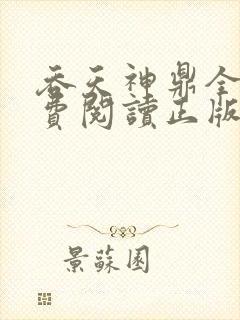 吞天神鼎全
費閱讀正版
景蘇園